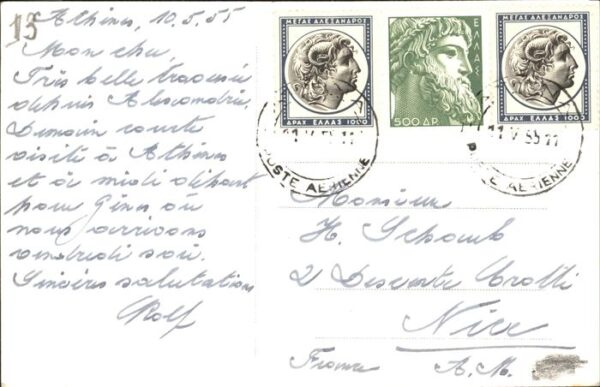 13
Athènes, 10.5.55
Mon cher
Très belle traversée
depuis Alexandrie.
Demain courte
visite à Athènes
et à midi départ
pour Gênes où
nous arrivons
vendredi soir.
Sincères salutations
Rolf
ΜΕΓΑΣ ΑΛΕΞΑΝΔΡΟΣ
ΔΡΑΧ. ΕΛΛΑΣ 1000
ΕΛΛΑΣ
500 ΔΡ.
ΜΕΓΑΣ ΑΛΕΞΑΝΔΡΟΣ
ΔΡΑΧ. ΕΛΛΑΣ 1000
11 V 55
POSTE AERIENNE
11 V 55 21
POSTE AERIENNE
Monsieur
H. Schaub
2 Descente Crotti
Nice
France A.M.